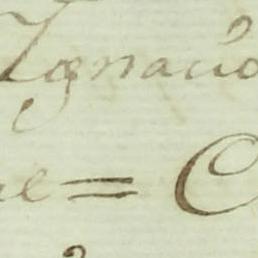 Ignacio
e = C